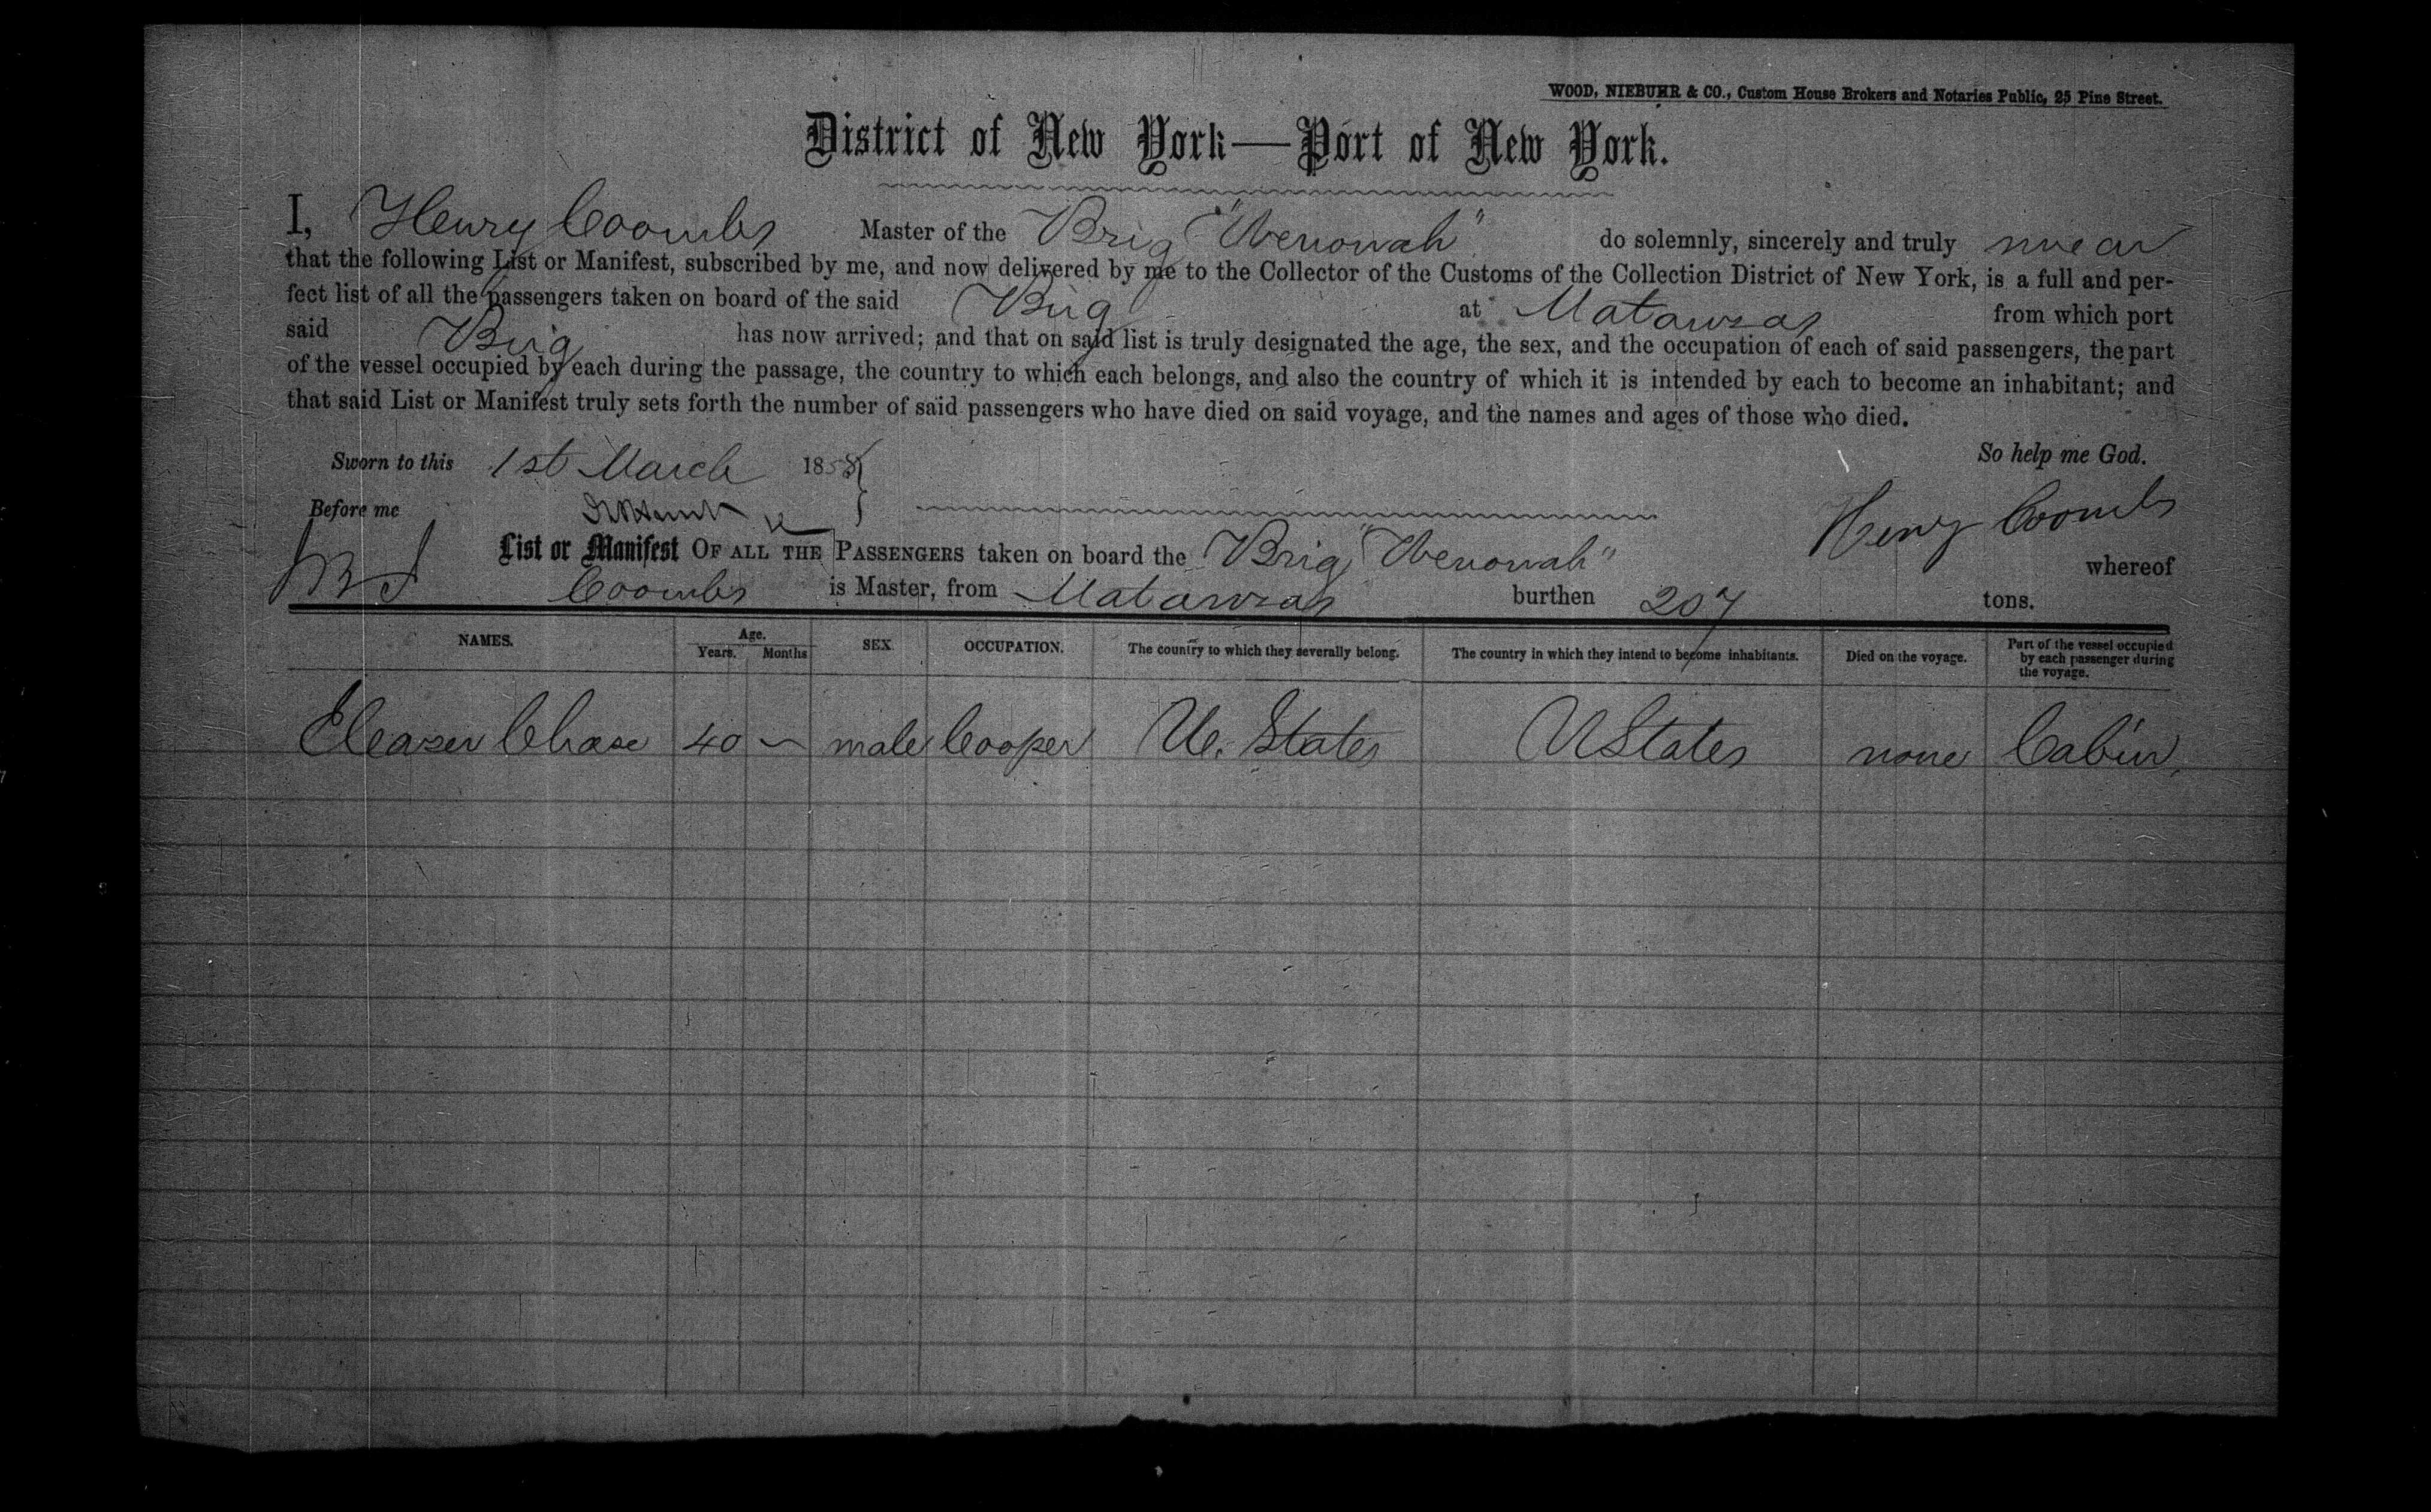 WOOD, NIEBUHR & CO., Custom House Brokers and Notaries Public, 25 Pine Street.
District of New York—Port of New York.
I, Henry Coombs Master of the Brig "Wenonah" do solemnly, sincerely and truly swear
that the following List or Manifest, subscribed by me, and now delivered by me to the Collector of the Customs of the Collection District of New York, is a full and per-
fect list of all the passengers taken on board of the said Brig at Matanzas from which port
said Brig has now arrived; and that on said list is truly designated the age, the sex, and the occupation of each of said passengers, the part
of the vessel occupied by each during the passage, the country to which each belongs, and also the country of which it is intended by each to become an inhabitant; and
that said List or Manifest truly sets forth the number of said passengers who have died on said voyage, and the names and ages of those who died.
Sworn to this 1st March 1858 So help me God.
Before me Henry Coombs
List or Manifest OF ALL THE PASSENGERS taken on board the Brig "Wenonah" whereof
Coombs is Master, from Matanzas burthen 207 tons.
NAMES. Age. Years. Months SEX. OCCUPATION. The country to which they severally belong. The country in which they intend to become inhabitants. Died on the voyage. Part of the vessel occupied by each passenger during the voyage.
Eleazer Chase 40 — male Cooper U. States U States none Cabin.